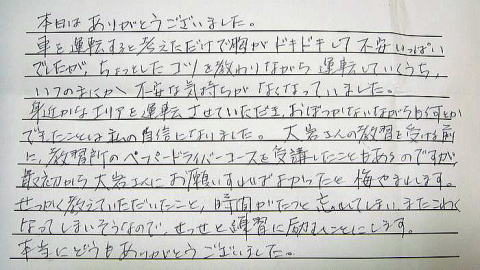 本日はありがとうございました。
車を運転すると考えただけで胸がドキドキして不安いっぱい
でしたが、ちょっとしたコツを教わりながら運転していくうち、
いつのまにか不安な気持ちがなくなっていました。
身近かなエリアを運転させていただき、おぼつかないながらも何とか
できたことは私の自信になりました。大岩さんの教習を受ける前
に、教習所のペーパードライバーコースを受講したこともあるのですが、
最初から大岩さんにお願いすればよかったと悔やまれます。
せっかく教えていただいたこと、時間がたつと忘れてしまい、またこわく
なってしまいそうなので、せっせと練習に励むことにします。
本当にどうもありがとうございました。